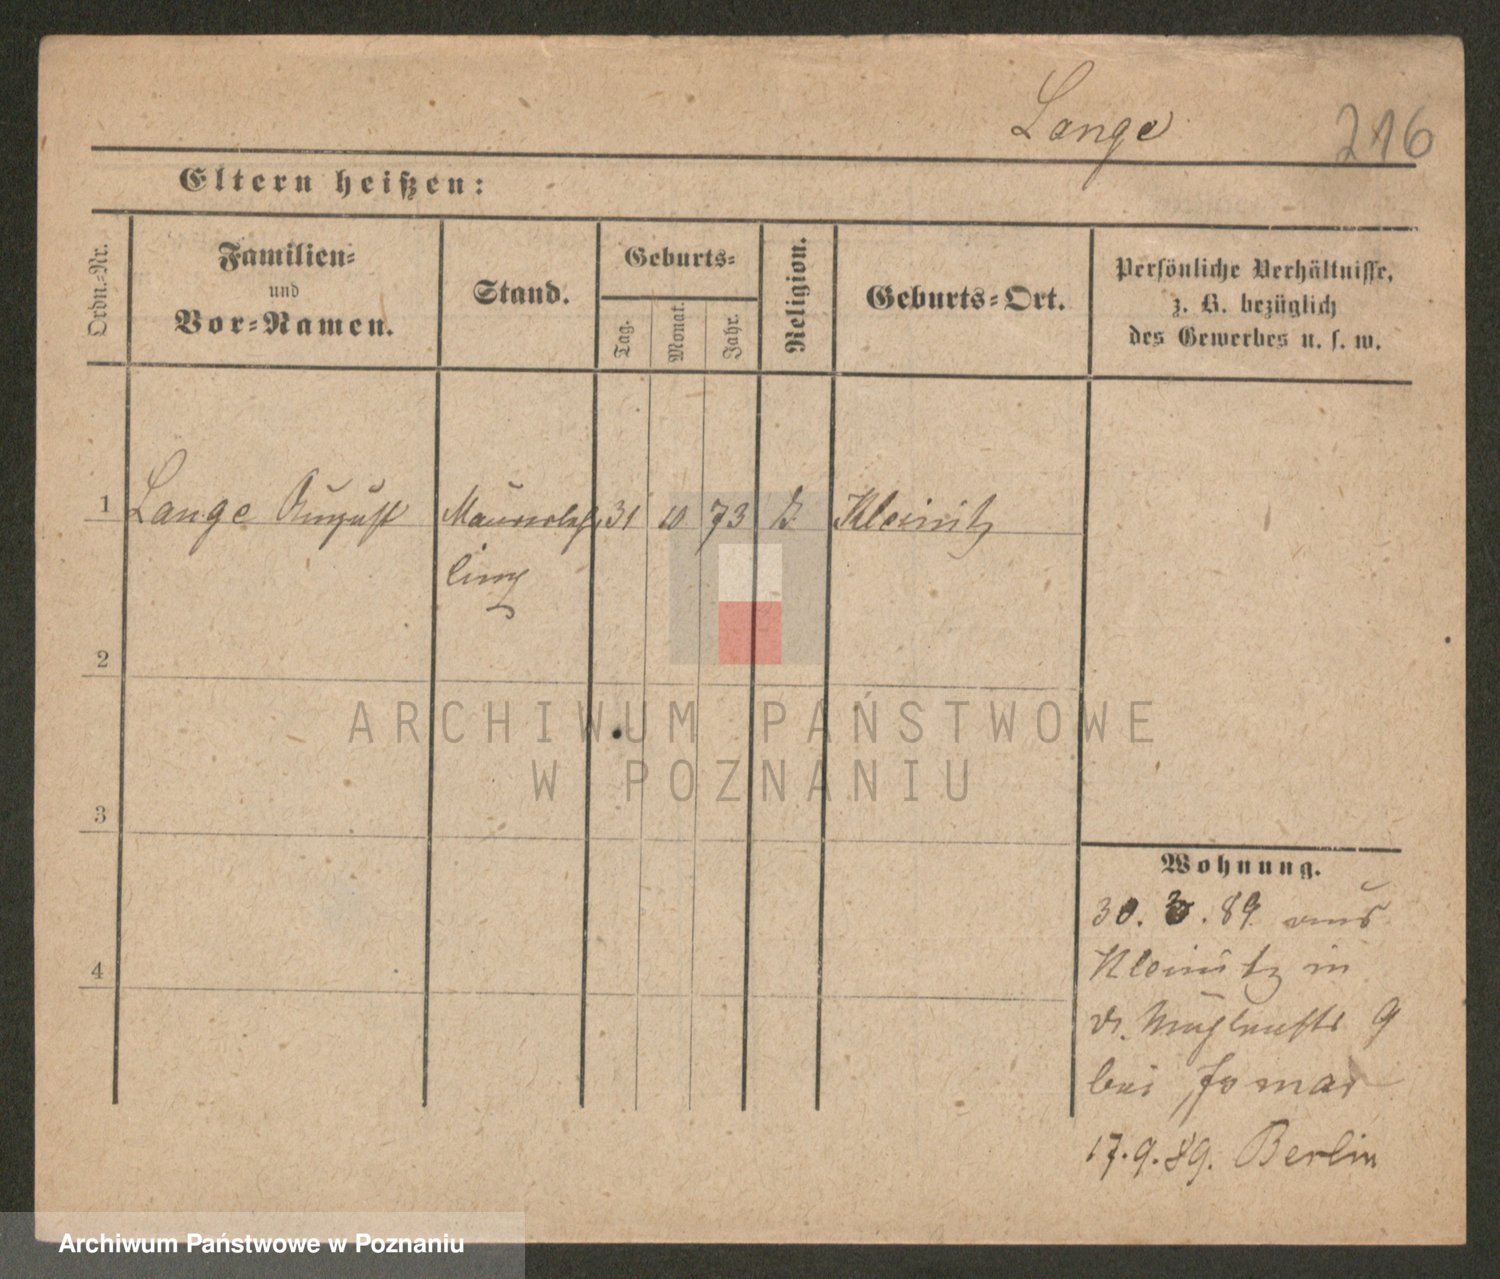 Lange
216
Eltern heißen:
Ordn.-Nr.
Familien-
und
Vor-Namen.
Stand.
Geburts-
Tag.
Monat.
Jahr.
Religion.
Geburts-Ort.
Persönliche Verhältnisse,
z. B. bezüglich
des Gewerbes u. s. w.
1 Lange August Maurerlehr 31 10 73 Kleinitz
ling
2
3
4
Wohnung.
30. 3. 89 aus
Kleinitz in
9
bei
17.9.89. Berlin
ARCHIWUM PAŃSTWOWE
W POZNANIU
Archiwum Państwowe w Poznaniu